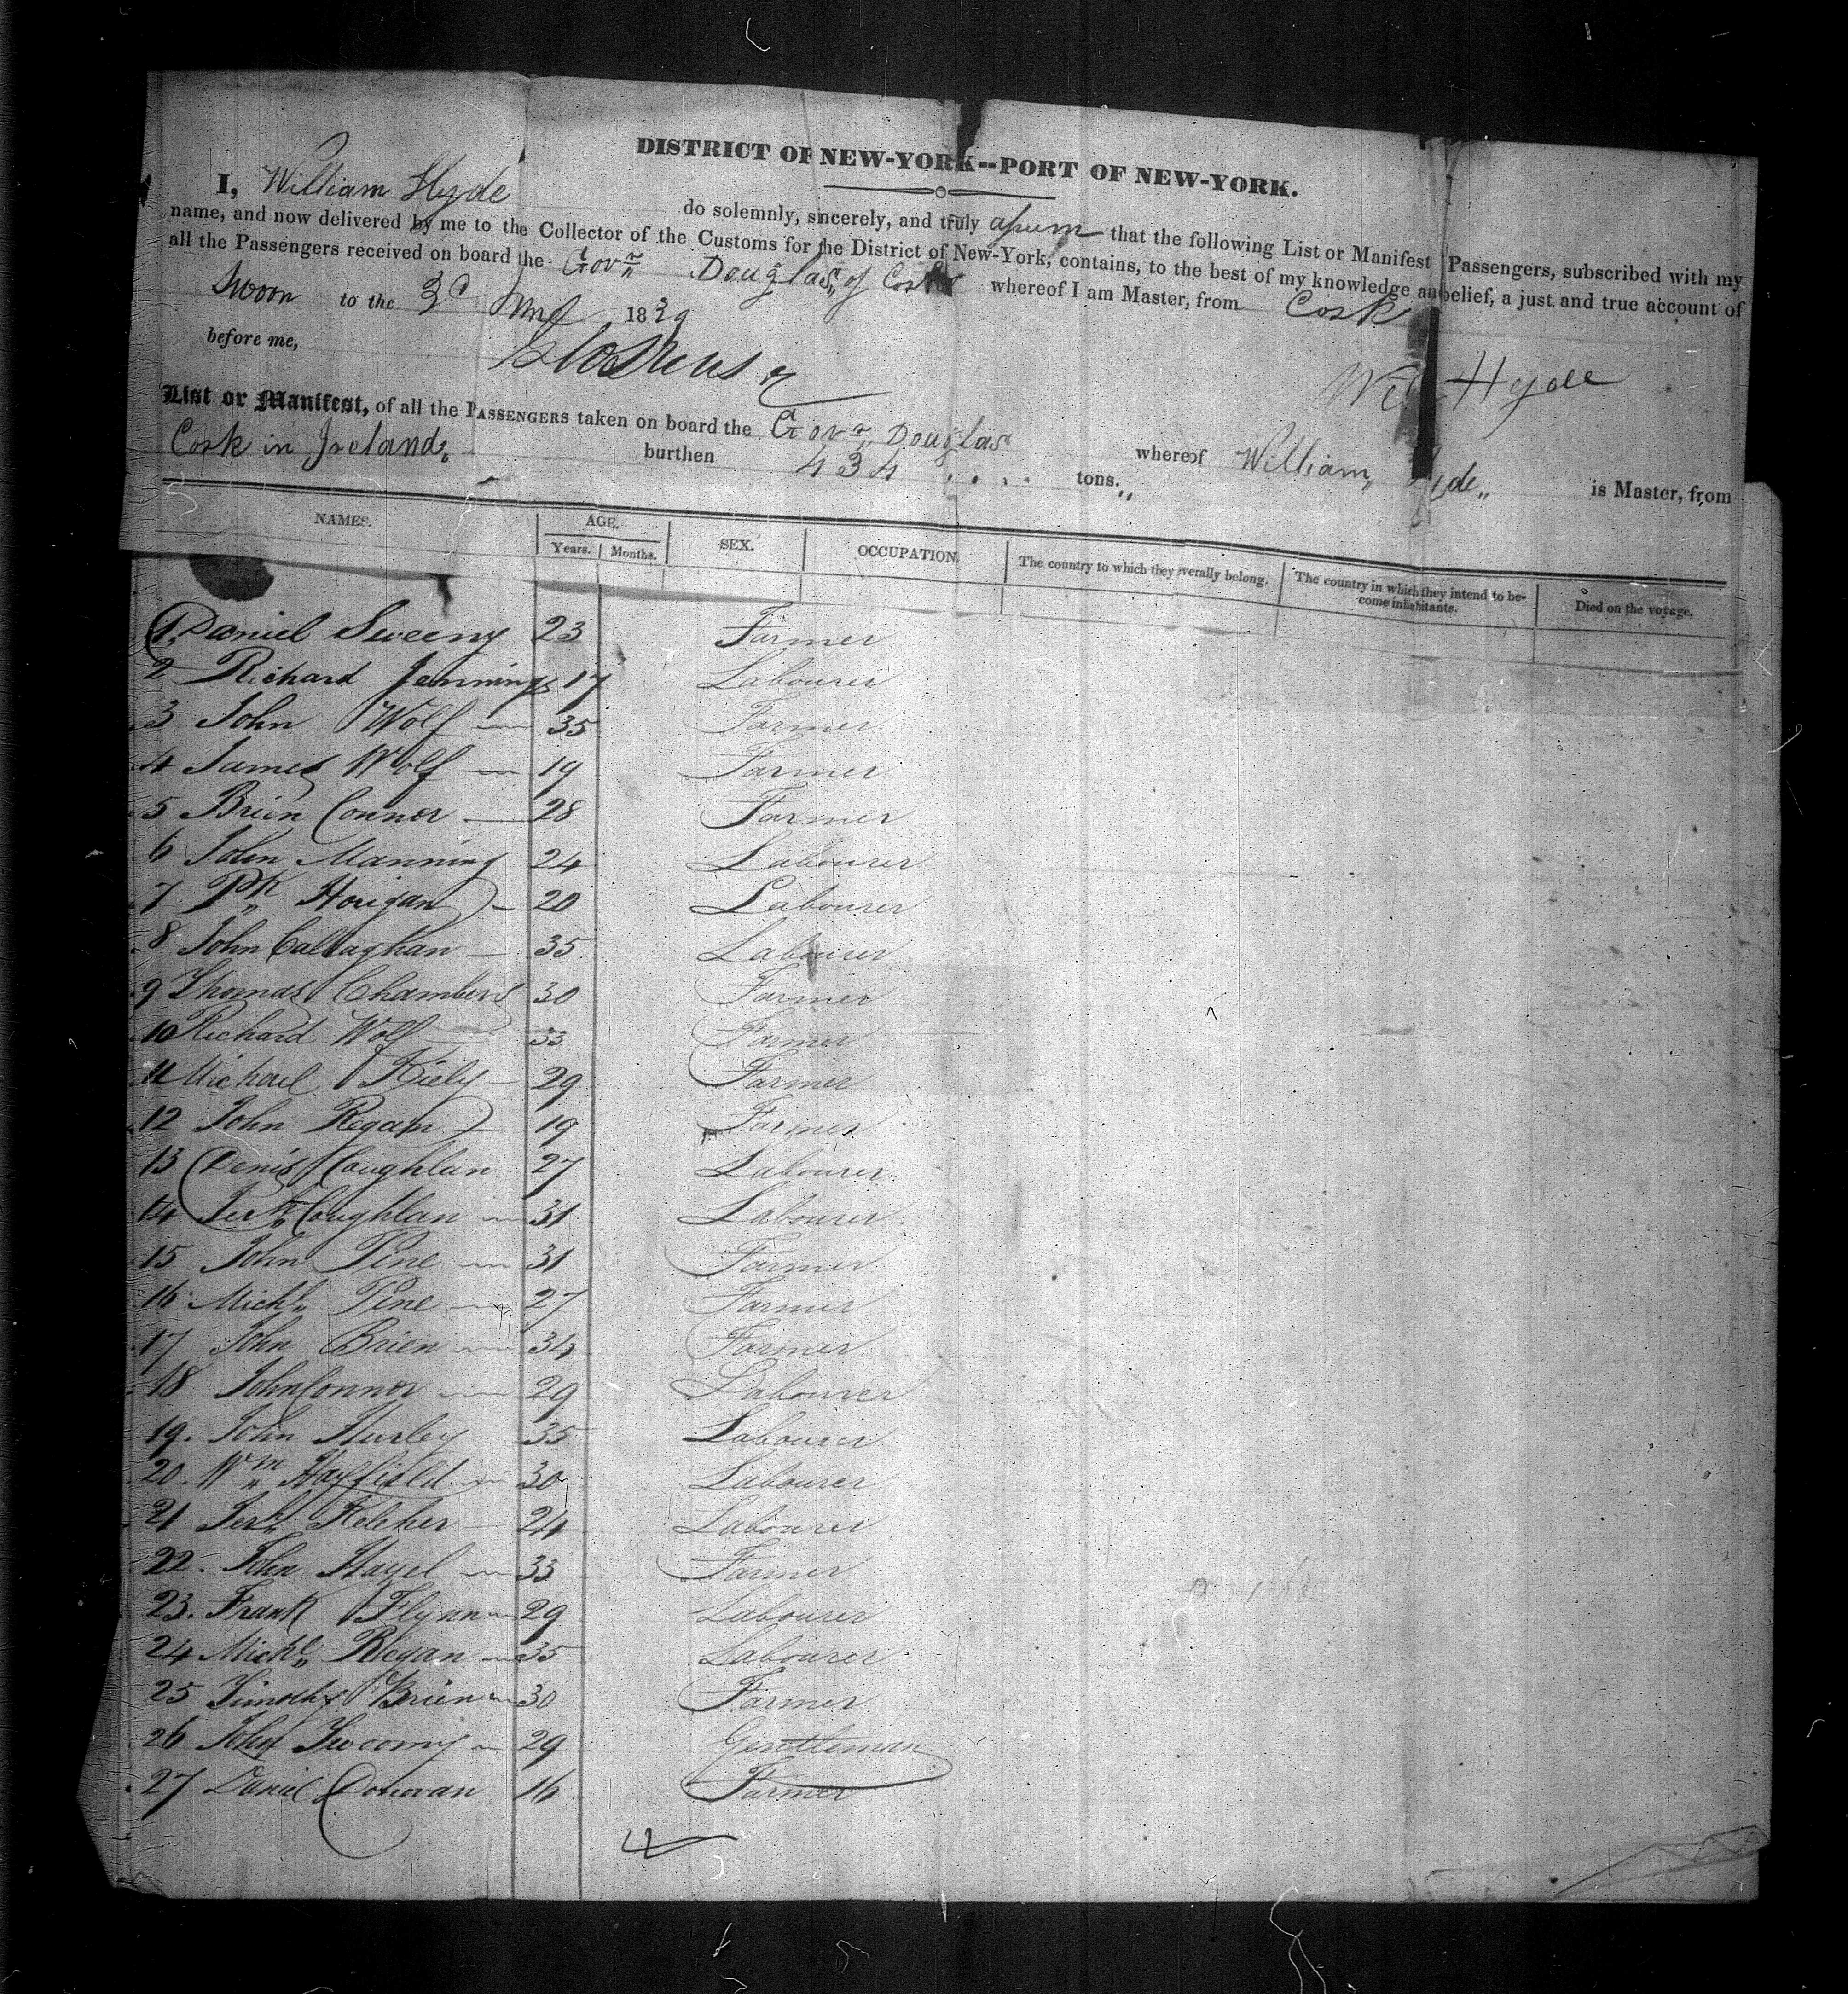 DISTRICT OF NEW-YORK--PORT OF NEW-YORK.
I, William Hyde do solemnly, sincerely, and truly that the following List or Manifest Passengers, subscribed with my
name, and now delivered by me to the Collector of the Customs for the District of New-York, contains, to the best of my knowledge an belief, a just and true account of
all the Passengers received on board the Govr Douglas of Cork whereof I am Master, from Cork
Sworn to the 3d 1839
before me,
Wm Hyde
List or Manifest, of all the PASSENGERS taken on board the Govr Douglas whereof William Hyde is Master, from
Cork in Ireland, burthen 434 .... tons.
NAMES. AGE. SEX. OCCUPATION. The country to which they verally belong. The country in which they intend to be- Died on the voyage.
Years. Months. come inhabitants.
1 Daniel Sweeny 23 Farmer
2 Richard Jennings 17 Labourer
3 John Wolf 35 Farmer
4 James Wolf 19 Farmer
5 Brien Connor 28 Farmer
6 John Manning 24 Labourer
7 Pk Horigan 20 Labourer
8 John Callaghan 35 Labourer
9 Thomas Chambers 30 Farmer
10 Richard Wolf 33 Farmer
11 Michael Kiely 29 Farmer
12 John Regan 19 Farmer
13 Denis Coughlan 27 Labourer
14 Jerh Coughlan 31 Labourer
15 John Pine 31 Farmer
16 Michl Pine 27 Farmer
17 John Brien 34 Farmer
18 John Connor 29 Labourer
19. John Hurley 35 Labourer
20. Wm Hayfield 30 Labourer
21 Jerh Keleher 24 Labourer
22. John Hayel 33 Farmer
23. Frank Flynn 29 Labourer
24 Michl Regan 35 Labourer
25 Timothy Brien 30 Farmer
26 John Twoomy 29 Gentleman
27 Daniel Donovan 16 Farmer